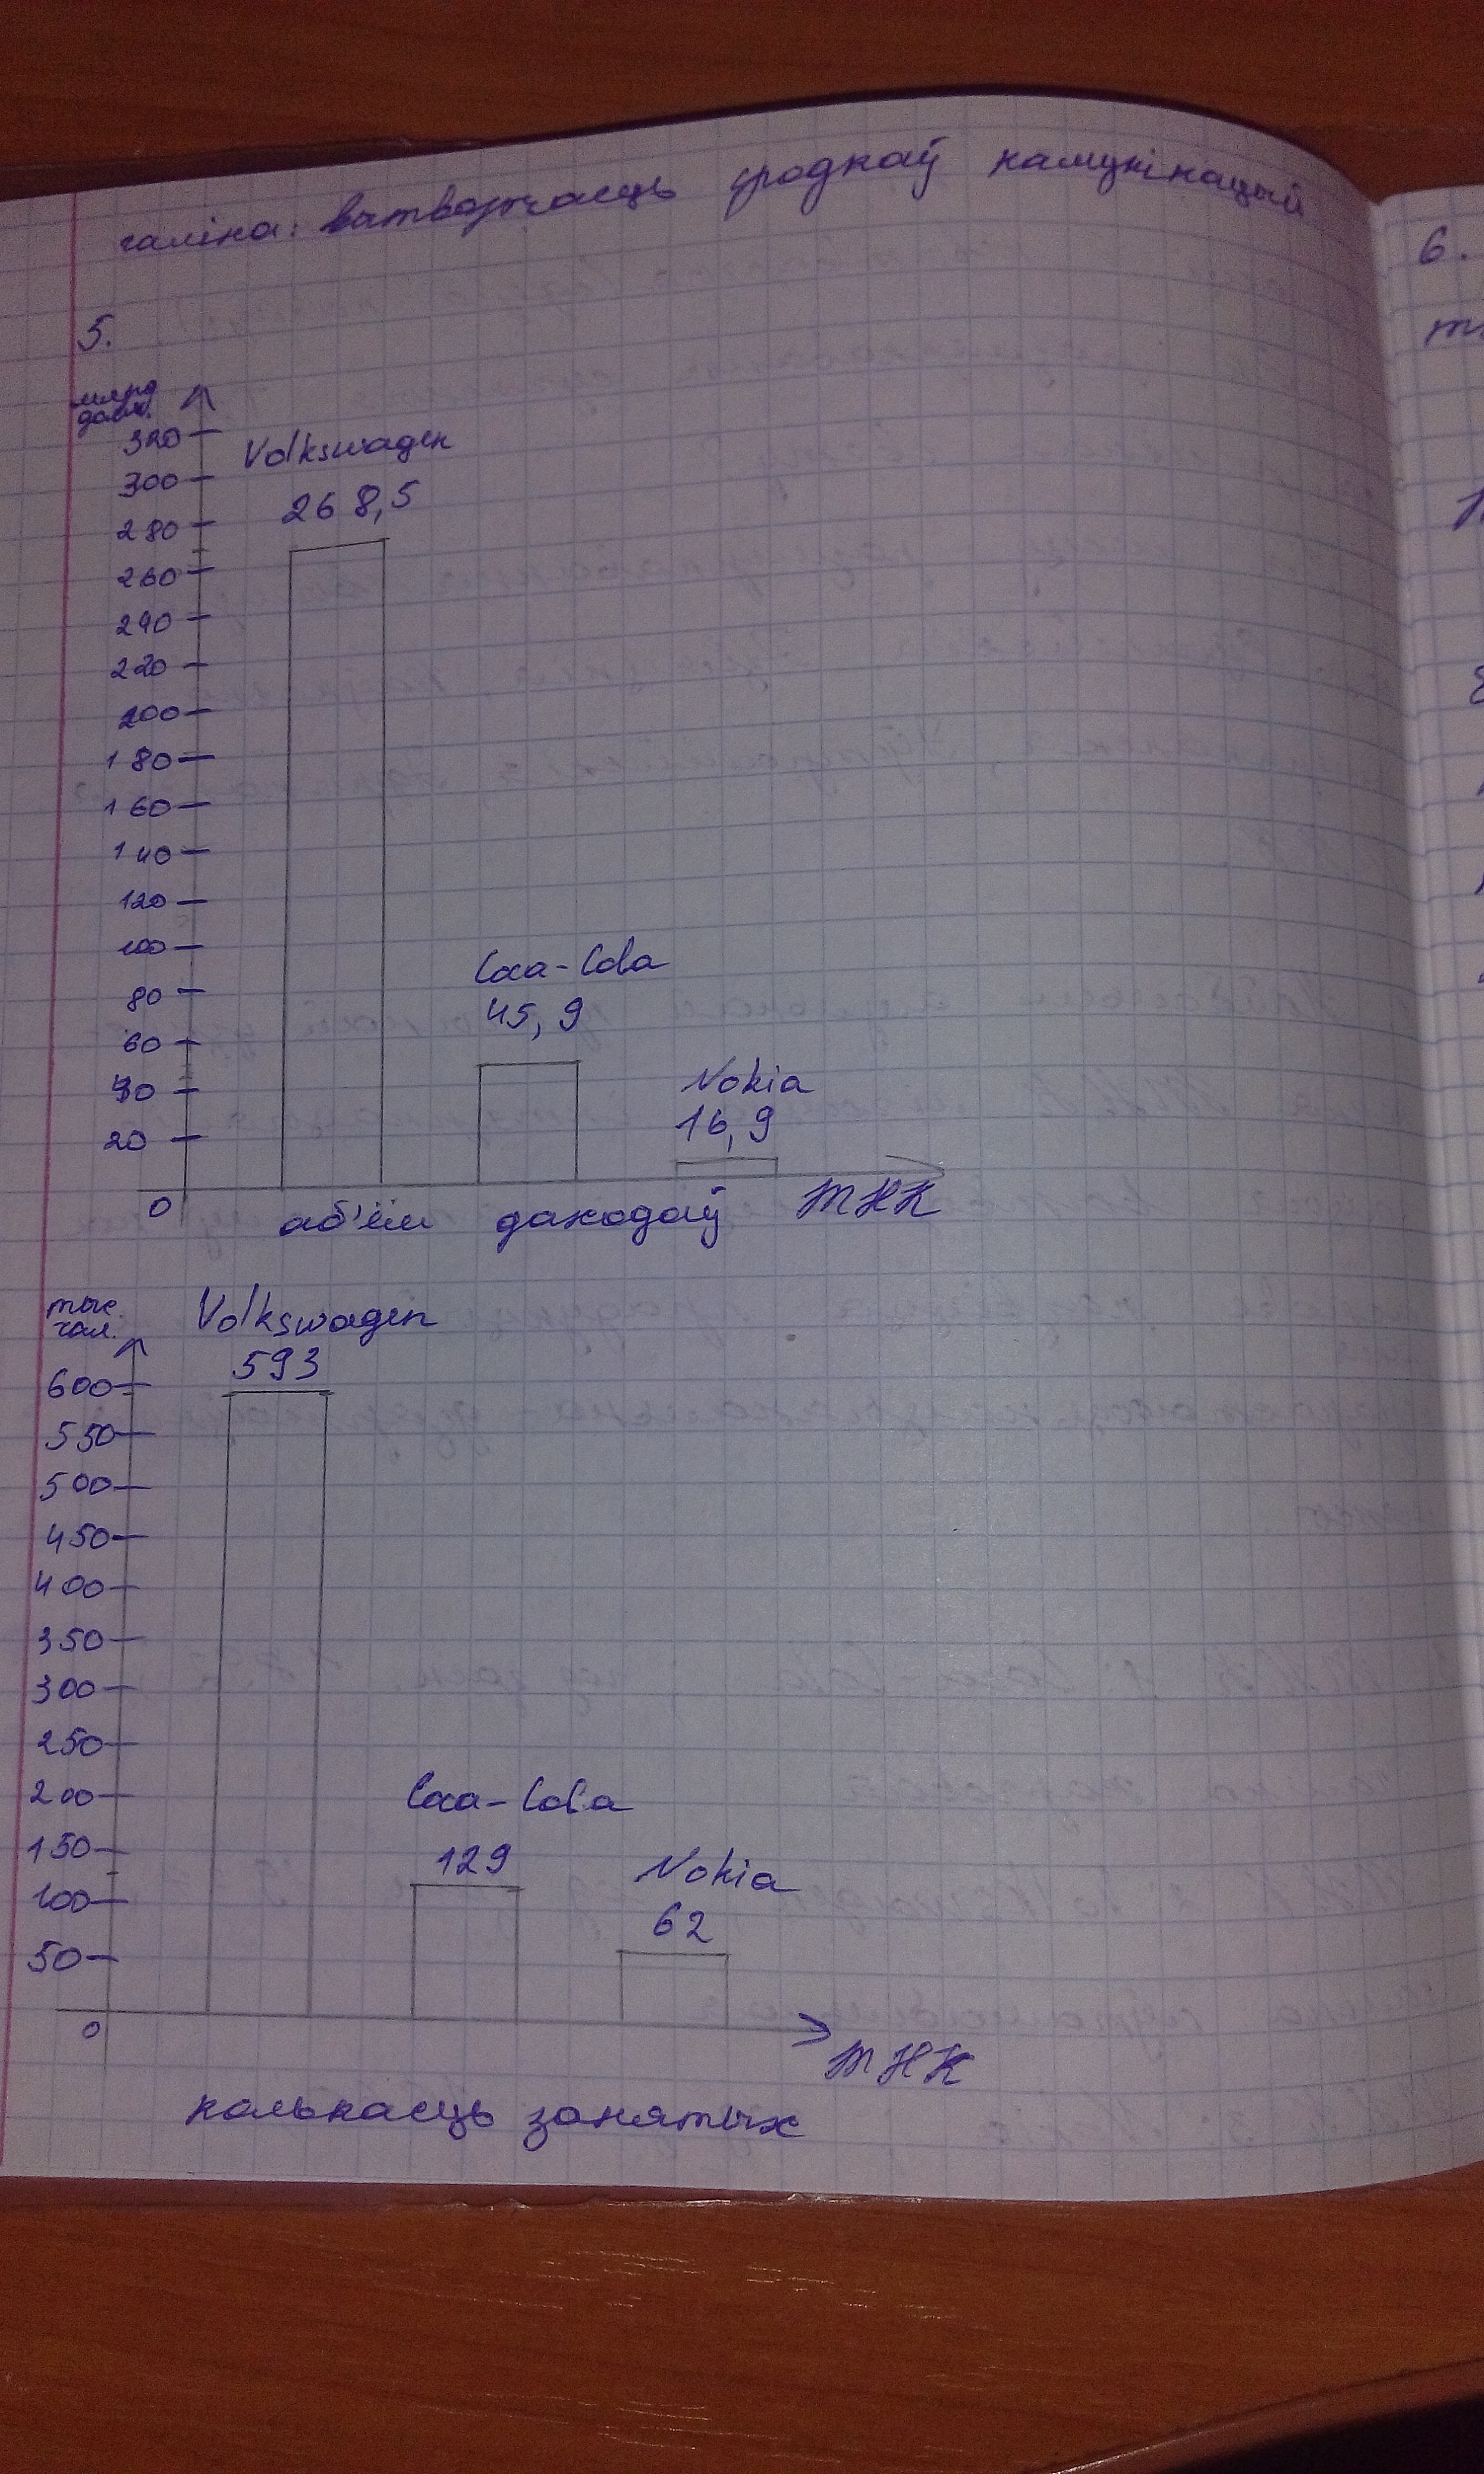 галіна: вытворчасць сродкаў камунікацый
5.
млрд
дол.
320
Volkswagen
300
268,5
280
260
240
220
200
180
160
140
120
100
Coca-Cola
80
45,9
60
40
Nokia
16,9
20
0
аб'ём даходаў ТНК
тыс.
чал.
Volkswagen
593
600
550
500
450
400
350
300
250
200
Coca-Cola
150
129
Nokia
100
62
50
0
ТНК
колькасць занятых
6.